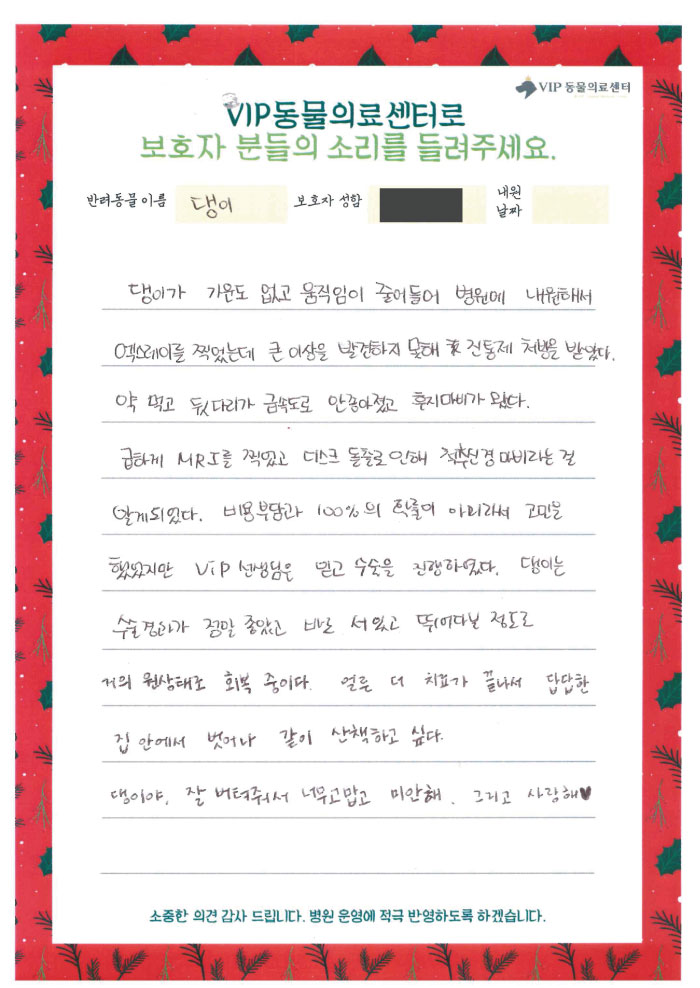 VIP 동물의료센터
VIP동물의료센터로
보호자 분들의 소리를 들려주세요.
반려동물 이름 댕이 보호자 성함 내원 날짜
댕이가 기운도 없고 움직임이 줄어들어 병원에 내원해서
엑스레이를 찍었는데 큰 이상을 발견하지 못해 진통제 처방을 받았다.
약 먹고 뒷다리가 급속도로 안좋아졌고 후지마비가 왔다.
급하게 MRI를 찍었고 디스크 돌출로 인해 척추신경 마비라는 걸
알게되었다. 비용부담과 100%의 확률이 아니라서 고민을
했었지만 VIP 선생님은 믿고 수술을 진행하였다. 댕이는
수술경과가 정말 좋았고 바로 서있고 뛰어다닐 정도로
거의 원상태로 회복 중이다. 얼른 더 치료가 끝나서 답답한
집 안에서 벗어나 같이 산책하고 싶다.
댕이야, 잘 버텨줘서 너무고맙고 미안해. 그리고 사랑해♥
소중한 의견 감사 드립니다. 병원 운영에 적극 반영하도록 하겠습니다.